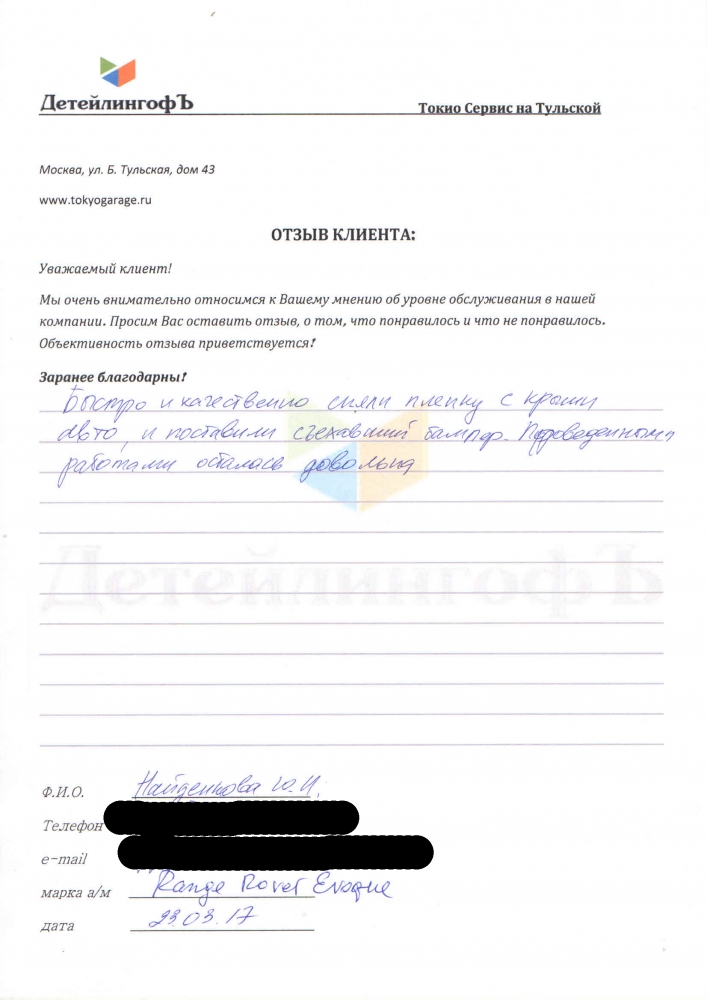 ДетейлингофЪ
Токио Сервис на Тульской
Москва, ул. Б. Тульская, дом 43
www.tokyogarage.ru
ОТЗЫВ КЛИЕНТА:
Уважаемый клиент!
Мы очень внимательно относимся к Вашему мнению об уровне обслуживания в нашей
компании. Просим Вас оставить отзыв, о том, что понравилось и что не понравилось.
Объективность отзыва приветствуется!
Заранее благодарны!
Быстро и качественно сняли пленку с крыши
авто, и поставили съехавший бампер. Проведенными
работами осталась довольна
ДетейлингофЪ
Ф.И.О. Найденкова Ю.И.
Телефон
e-mail
марка а/м Range Rover Evoque
дата 23.03.17